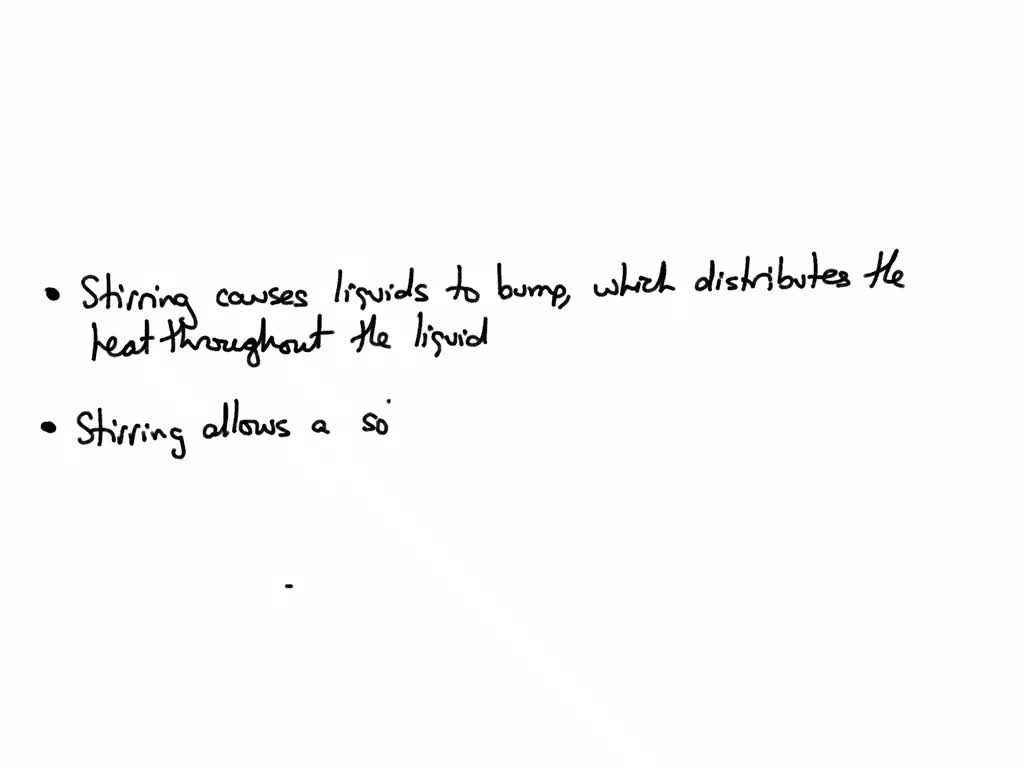 • Stirring causes liquids to bump, which distributes the
heat throughout the liquid
• Stirring allows a so